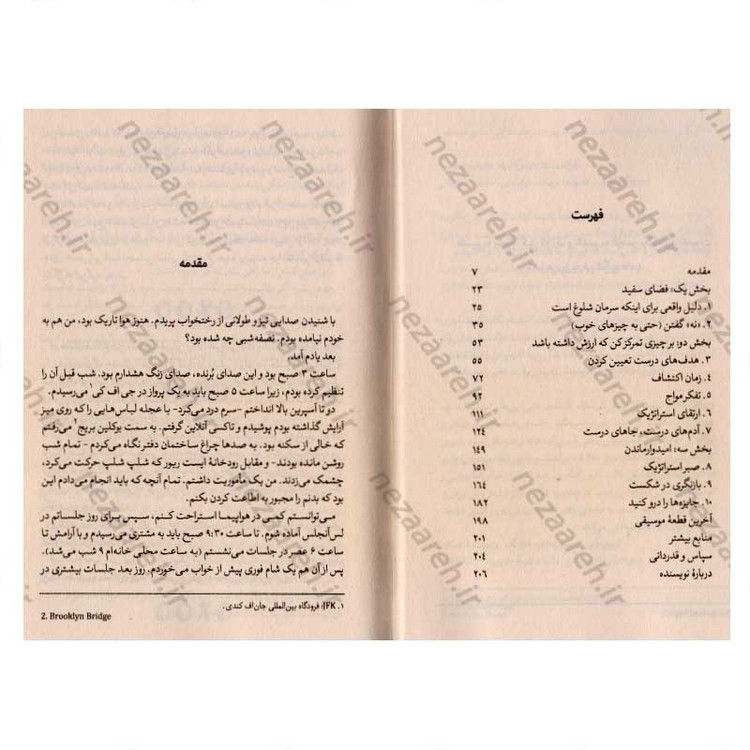 فهرست
مقدمه ۷
بخش یک: فضای سفید ۲۳
۱. دلیل واقعی برای اینکه سرمان شلوغ است ۲۵
۲. «نه» گفتن (حتی به چیزهای خوب) ۳۵
بخش دو: بر چیزی تمرکز کن که ارزش داشته باشد ۵۳
۳. هدف‌های درست تعیین کردن ۵۵
۴. زمان اکتشاف ۷۲
۵. تفکر مواج ۹۲
۶. ارتقای استراتژیک ۱۱۱
۷. آدم‌های درست، جاهای درست ۱۲۴
بخش سه: امیدوار ماندن ۱۴۹
۸. صبر استراتژیک ۱۵۱
۹. بازنگری در شکست ۱۶۴
۱۰. جایزه‌ها را درو کنید ۱۸۲
آخرین قطعهٔ موسیقی ۱۹۸
منابع بیشتر ۲۰۱
سپاس و قدردانی ۲۰۴
دربارهٔ نویسنده ۲۰۶
مقدمه
با شنیدن صدایی تیز و طولانی از رختخواب پریدم. هنوز هوا تاریک بود، من هم به
خودم نیامده بودم. نصفه‌شبی چه شده بود؟
بعد یادم آمد.
ساعت ۳ صبح بود و این صدای بُرنده، صدای زنگ هشدارم بود. شب قبل آن را
تنظیم کرده بودم، زیرا ساعت ۵ صبح باید به یک پرواز در جی اف کی۱ می‌رسیدم.
دو تا آسپرین بالا انداختم -سرم درد می‌کرد- با عجله لباس‌هایی را که روی میز
آرایش گذاشته بودم پوشیدم و تاکسی آنلاین گرفتم. به سمت بوکلین بریج۲ می‌رفتم
که خالی از سکنه بود. به صدها چراغ ساختمان دفتر نگاه می‌کردم - تمام شب
روشن مانده بودند- و مقابل رودخانهٔ ایست ریور که شلپ شلپ حرکت می‌کرد،
چشمک می‌زدند. من یک مأموریت داشتم. تمام آنچه که باید انجام می‌دادم این
بود که بدنم را مجبور به اطاعت کردن بکنم.
می‌توانستم کمی در هواپیما استراحت کنم، سپس برای روز جلساتم در
لس آنجلس آماده شوم. تا ساعت ۹:۳۰ صبح باید به مشتری می‌رسیدم و با آرامش تا
ساعت ۶ عصر در جلسات می‌نشستم (به ساعت محلی خانه‌ام ۹ شب می‌شد).
پس از آن هم یک شام فوری پیش از خواب می‌خوردم. روز بعد جلسات بیشتری در
۱. JFK: فرودگاه بین‌المللی جان اف کندی.
2. Brooklyn Bridge
nezaareh.ir